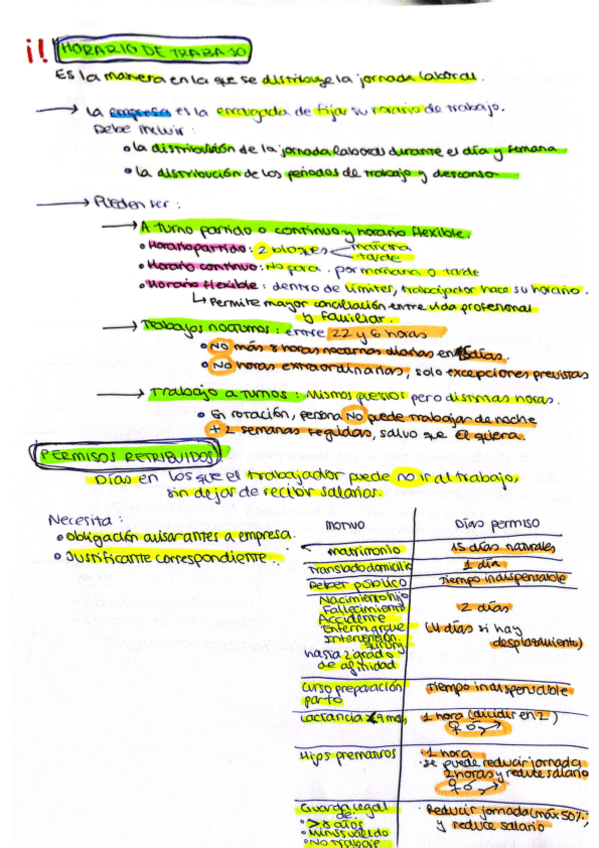 ¡! HORARIO DE TRABAJO
Es la manera en la que se distribuye la jornada laboral.
→ La empresa es la encargada de fijar su horario de trabajo.
Debe incluir:
• La distribución de la jornada laboral durante el día y semana
• La distribución de los periodos de trabajo y descanso
→ Pueden ser:
→ A turno partido o continuo y horario flexible.
• Horario partido: 2 bloques < mañana
tarde
• Horario continuo: No para. por mañana o tarde
• Horario flexible: dentro de límites, trabajador hace su horario.
↳ Permite mayor conciliación entre vida profesional
y familiar.
→ Trabajos nocturnos: entre 22 y 6 horas
• NO más 8 horas nocturnas diarias en 15 días.
• NO horas extraordinarias, solo excepciones previstas
→ Trabajo a turnos: Mismos puestos pero distintas horas.
• En rotación, persona NO puede trabajar de noche
+ 2 semanas seguidas, salvo que él quiera.
PERMISOS RETRIBUIDOS
Días en los que el trabajador puede no ir al trabajo,
sin dejar de recibir salarios.
Necesita:
• Obligación avisar antes a empresa.
• Justificante correspondiente.
MOTIVO Días permiso
Matrimonio 15 días naturales
Translado domicilio 1 día
Deber público Tiempo indispensable
Nacimiento hijo
Fallecimiento
Accidente
Enferm. grave
Intervención
quirurg
hasta 2 grado
de afinidad
2 días
(4 días si hay
desplazamiento)
Curso preparación
parto
Tiempo indispensable
Lactancia <9 mes 1 hora (dividir en 2)
♀ o ♂
Hijos prematuros 1 hora
• se puede reducir jornada
2 horas y reduce salario
♀ o ♂
Guarda legal
de:
• > 8 años
• Minusválido
• No trabaje
• Reducir jornada (máx 50%)
y reduce salario